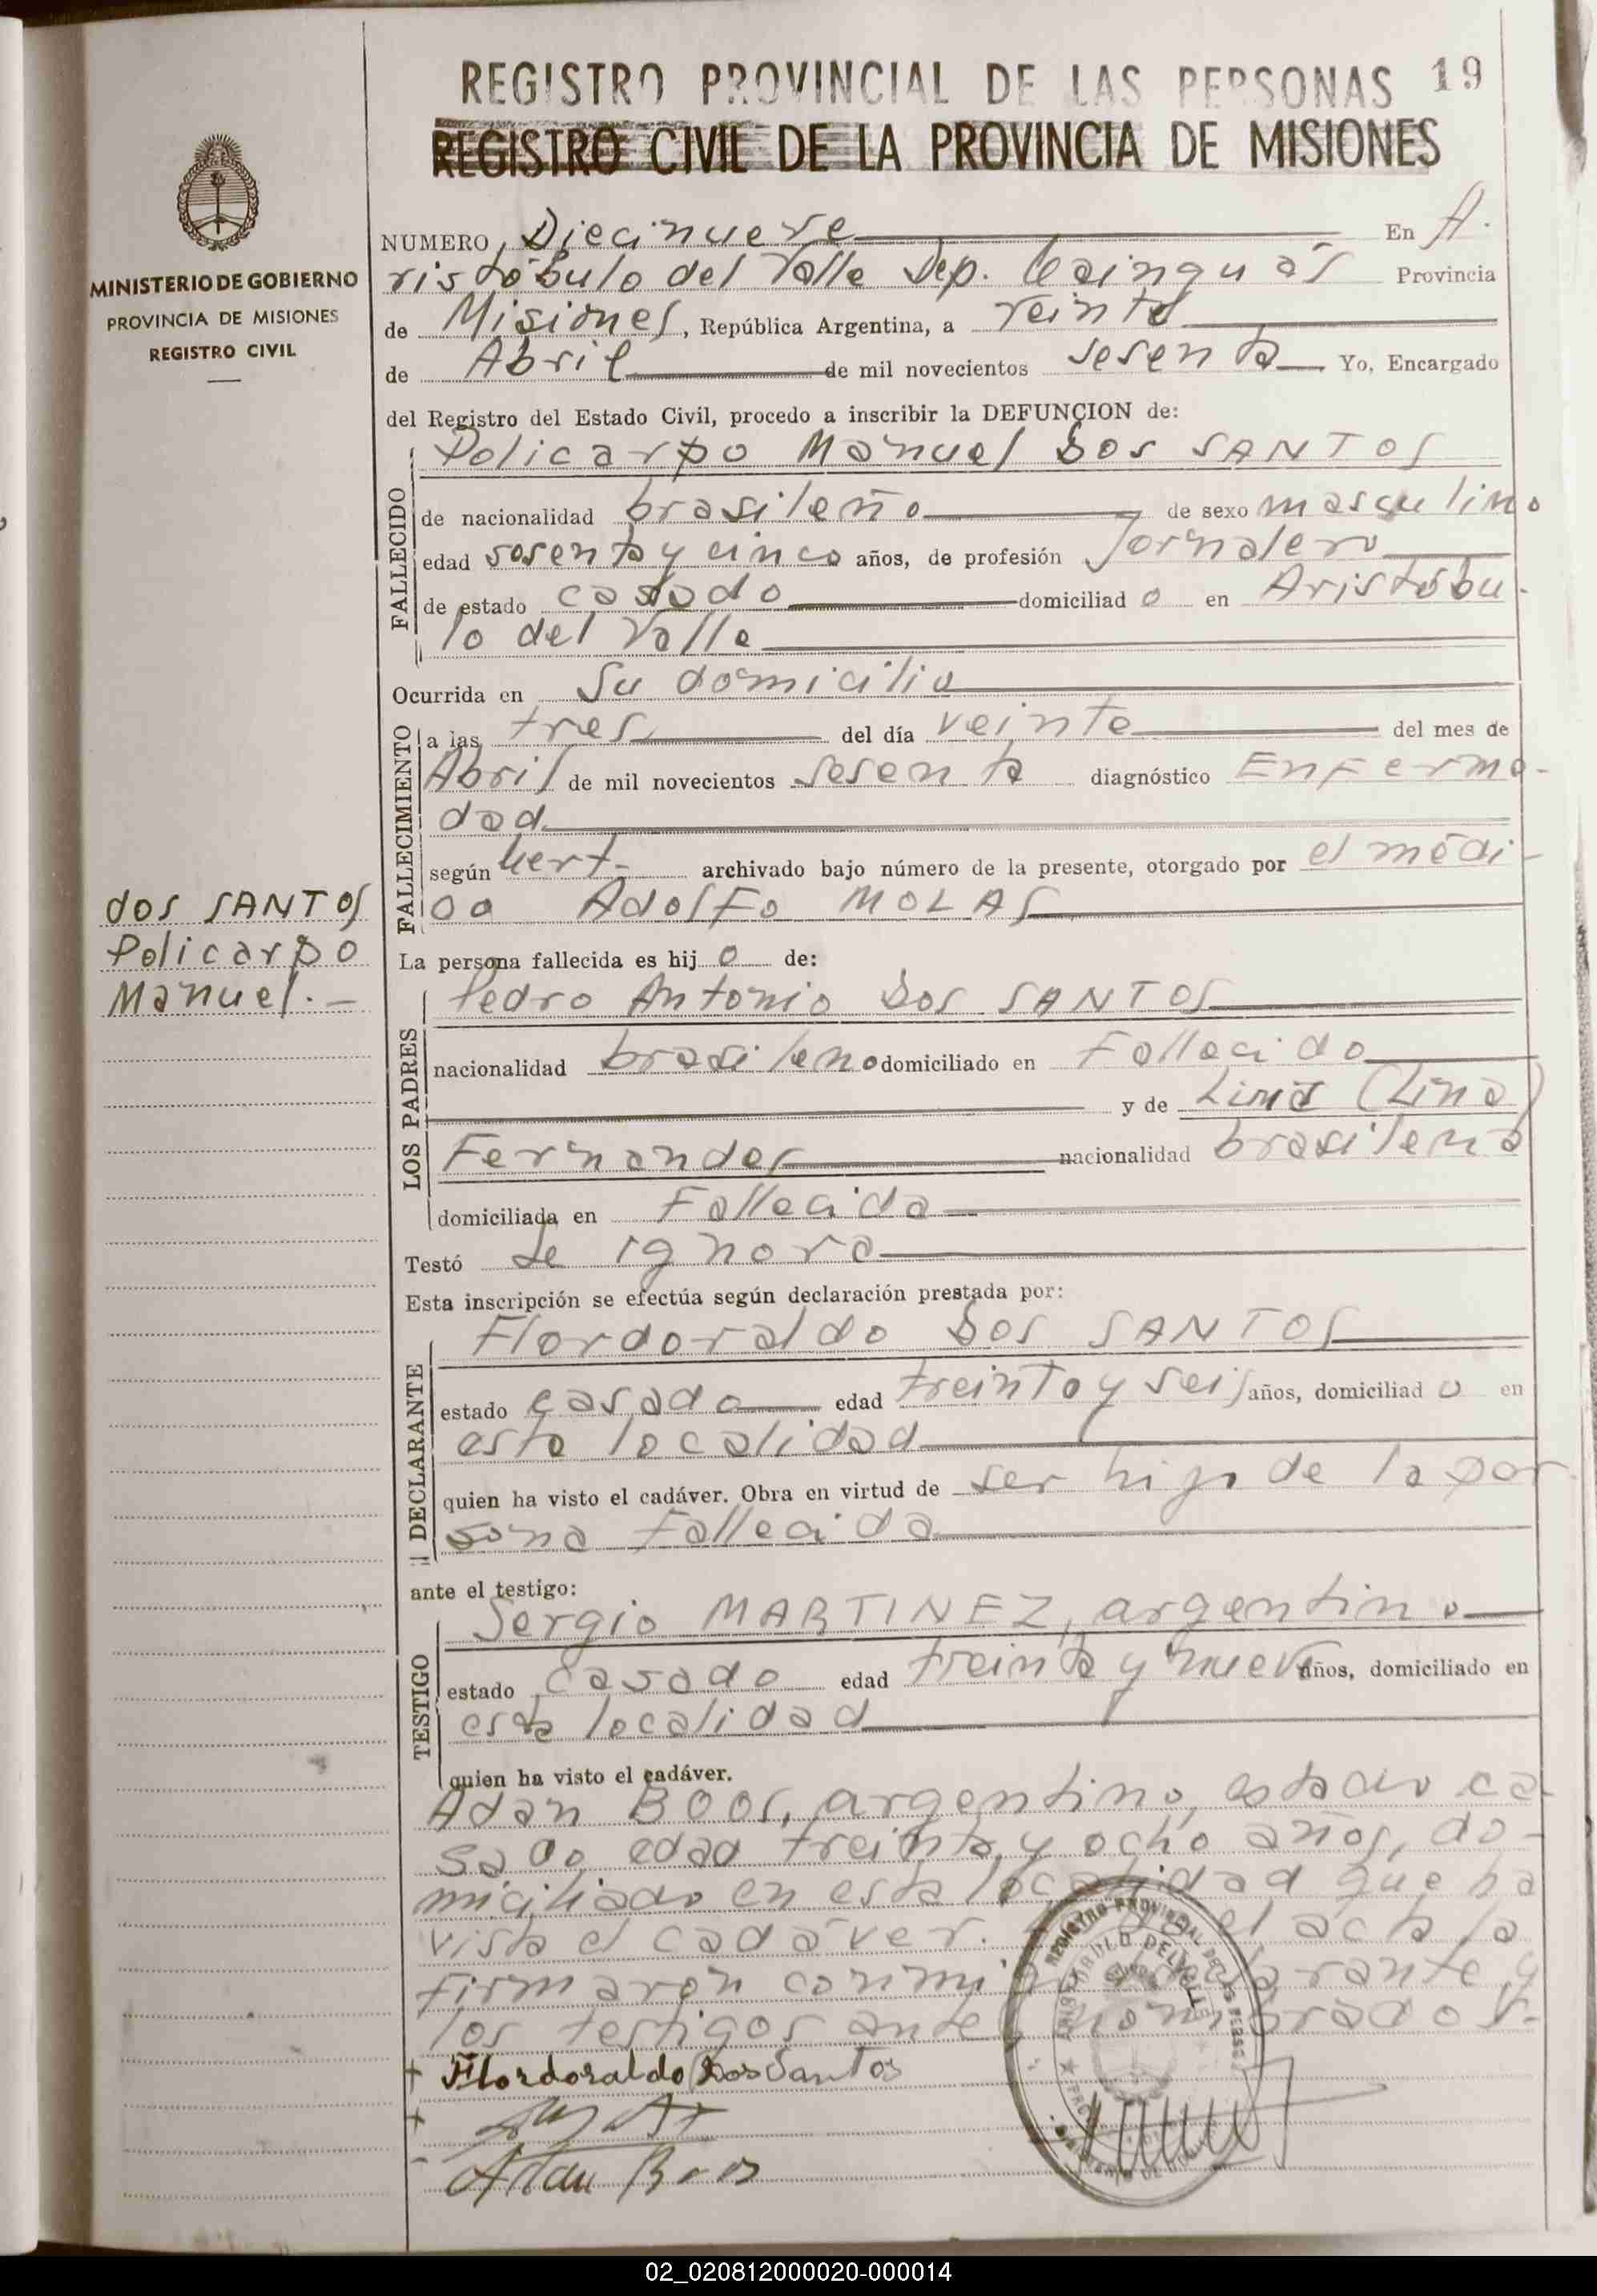 REGISTRO PROVINCIAL DE LAS PERSONAS 19
REGISTRO CIVIL DE LA PROVINCIA DE MISIONES
MINISTERIO DE GOBIERNO
PROVINCIA DE MISIONES
REGISTRO CIVIL
NUMERO Diecinueve En A.
ristóbulo del Valle Dep. Cainguás Provincia
de Misiones, República Argentina, a veinte
de Abril de mil novecientos sesenta Yo, Encargado
del Registro del Estado Civil, procedo a inscribir la DEFUNCION de:
Policarpo Manuel Dos SANTOS
FALLECIDO
de nacionalidad brasileño de sexo masculino
edad sesenta y cinco años, de profesión Jornalero
de estado casado domiciliado en Aristóbu-
lo del Valle
Ocurrida en Su domicilio
FALLECIMIENTO
a las tres del día veinte del mes de
Abril de mil novecientos sesenta diagnóstico Enferme-
dad
según Cert. archivado bajo número de la presente, otorgado por el médi-
co Adolfo MOLAS
dos SANTOS
Policarpo
Manuel.-
La persona fallecida es hijo de:
LOS PADRES
Pedro Antonio Dos SANTOS
nacionalidad brasileno domiciliado en Fallecido
y de Lima (Lina)
Fernandes nacionalidad brasilena
domiciliada en Fallecida
Testó Se ignora
Esta inscripción se efectúa según declaración prestada por:
DECLARANTE
Flordoraldo Dos SANTOS
estado casado edad treinta y seis años, domiciliado en
esta localidad
quien ha visto el cadáver. Obra en virtud de ser hijo de la per
sona fallecida
ante el testigo:
TESTIGO
Sergio MARTINEZ, argentino
estado casado edad treinta y nueve años, domiciliado en
esta localidad
quien ha visto el cadáver.
Adan BOOS, argentino, estado ca-
sado edad treinta y ocho años, do-
miciliado en esta localidad que ha
visto el cadáver. el acta la
firmaron conmigo declarante y
los testigos antes nombrados.-
Flordoraldo Dos Santos
Adan Boos
REGISTRO PROVINCIAL DE LAS PERSO
ARISTOBULO DEL VALLE
02_020812000020-000014